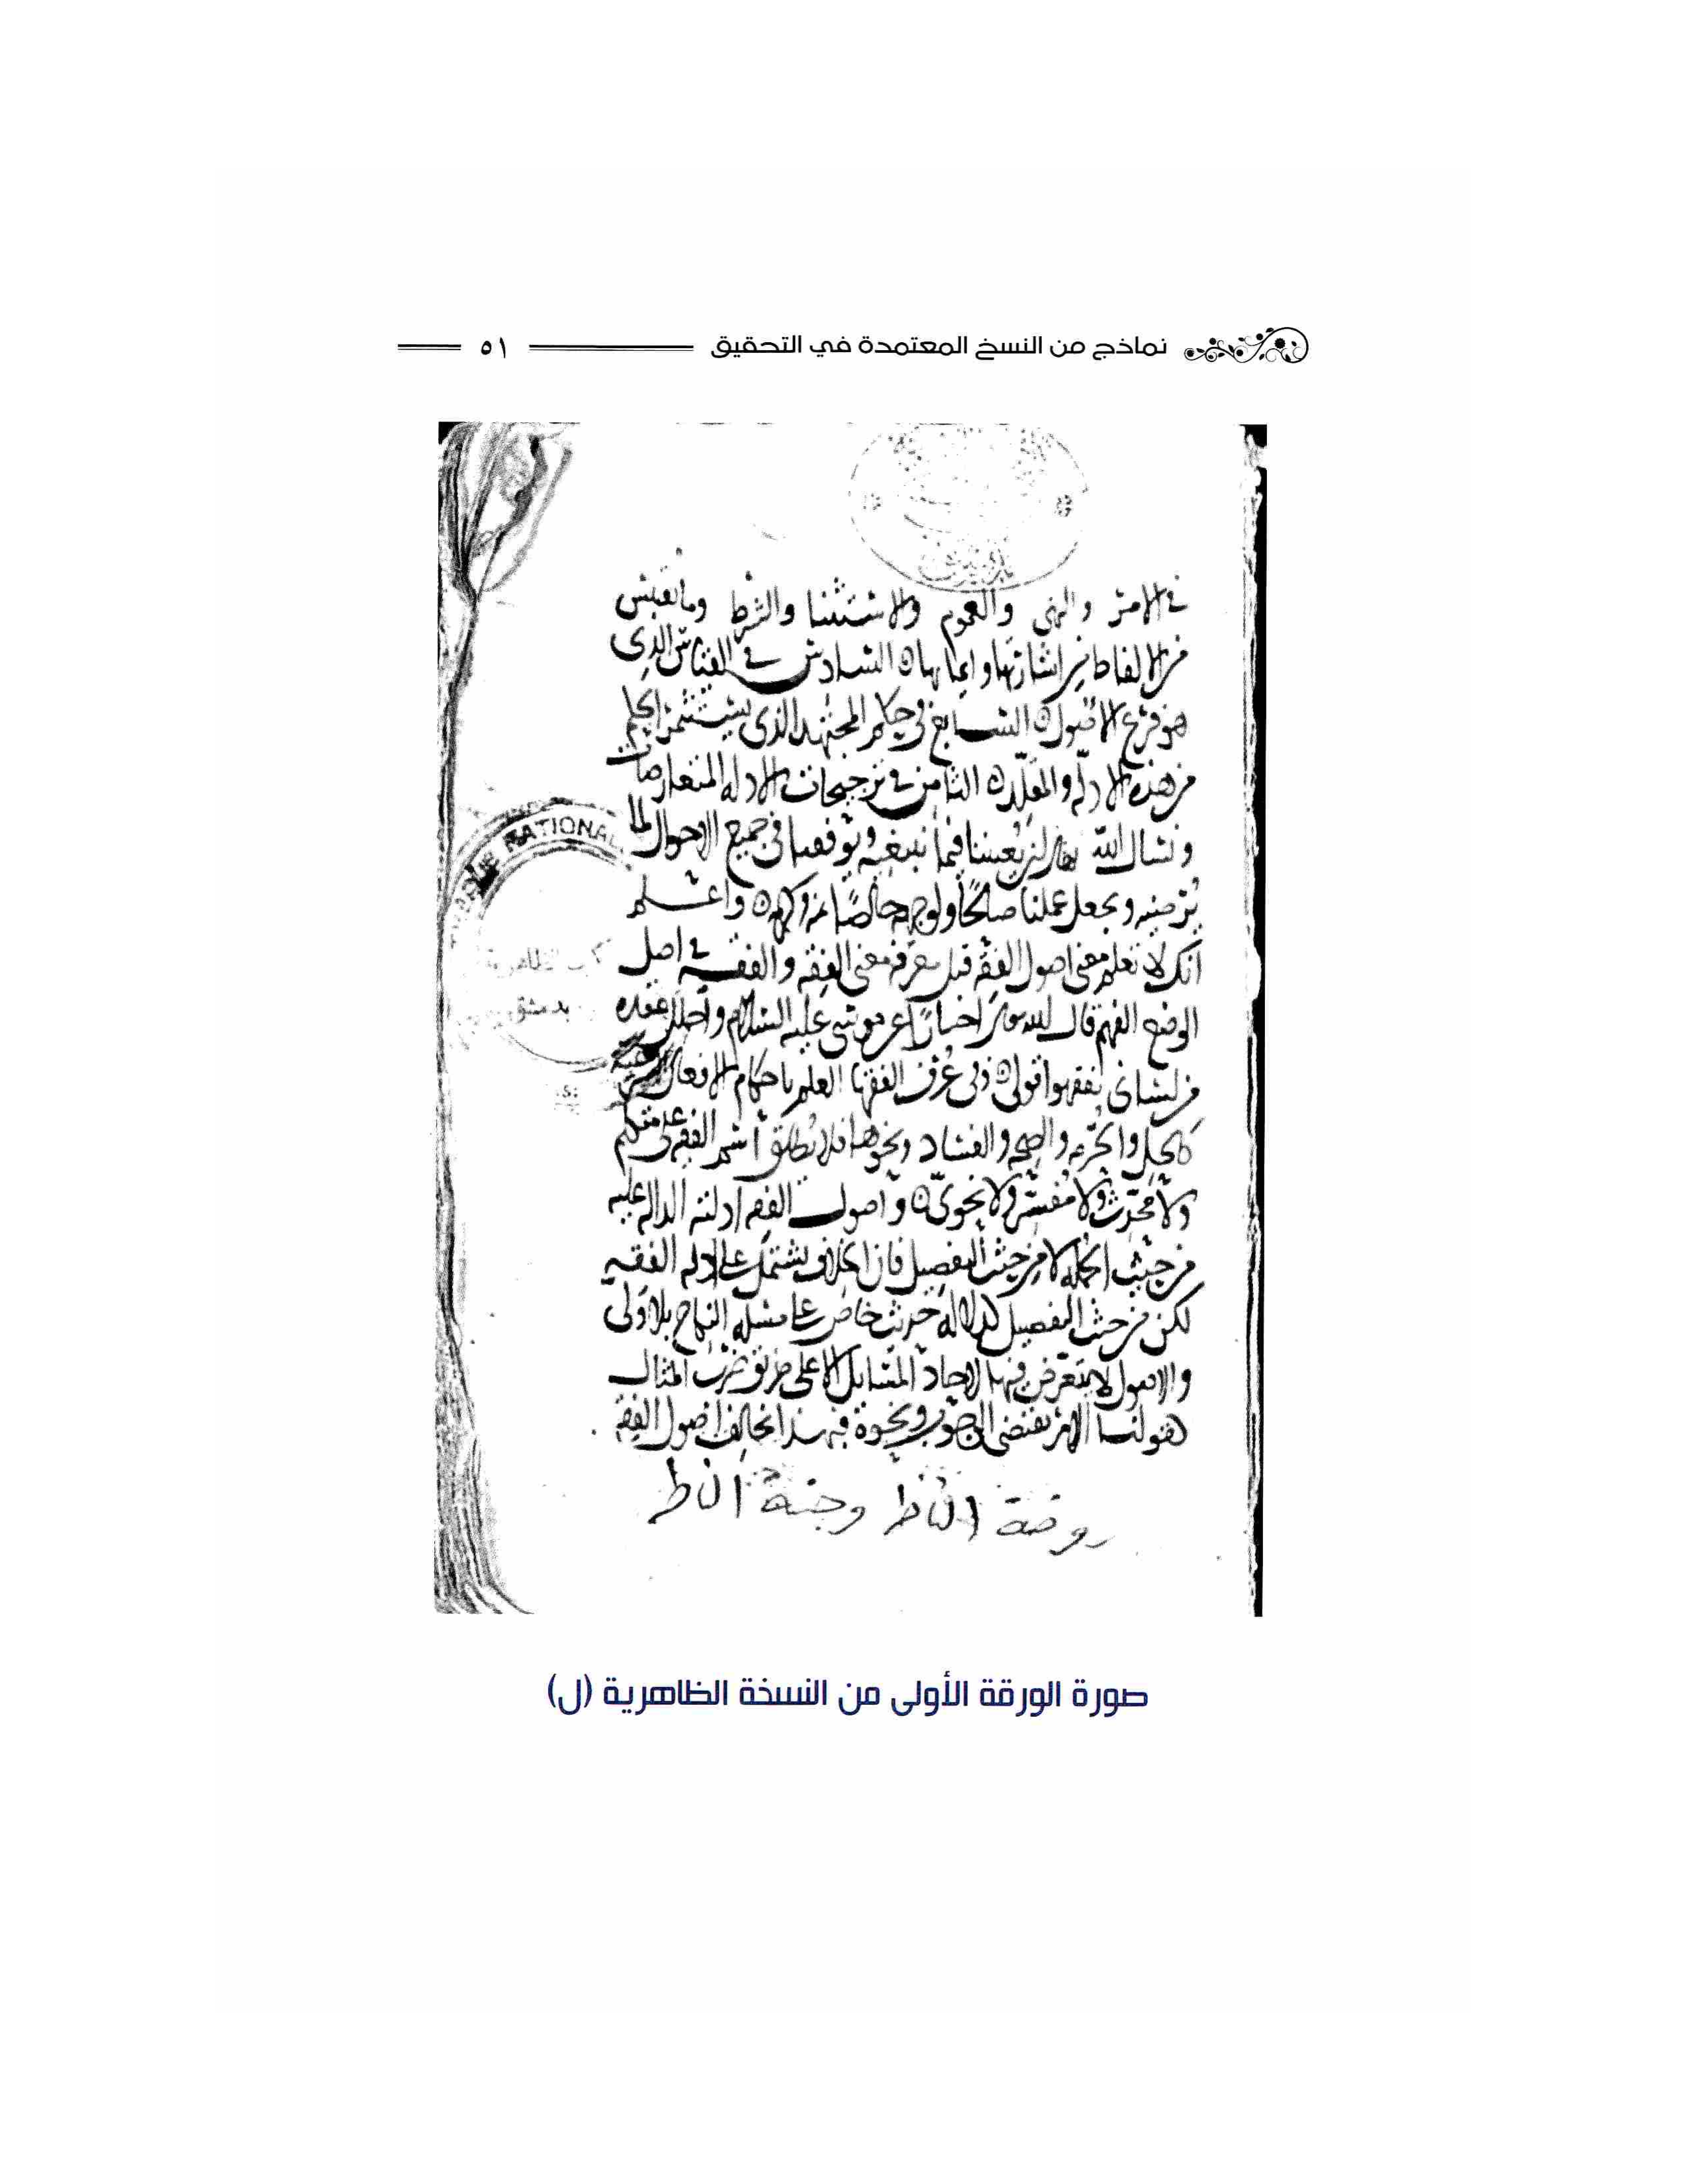 نماذج من النسخ المعتمدة في التحقيق ٥١
في الامر والنهي والعموم والاستثنا والشرط وما يقتبس
من الالفاظ من اشارتها وايمايها ٥ السادس في القياس الذي
هو فرع الاصول ٥ السابع في حكم المجتهد الذي يستثمر الحكم
من هذه الادلة والمقلد ٥ الثامن في ترجيحات الادله المتعارضات
ونسال الله تعالى ان يعيننا فيما نبتغيه ويوفقنا في جميع الاحوال لما
يرضيه ويجعل عملنا صالحًا ولوجهه خالصًا بمنه وكرمه ٥ واعلم
انك لا تعلم معنى اصول الفقه قبل معرفة معنى الفقه والفقه في اصل
الوضع الفهم قال الله تعالى اخبارًا عن موسى عليه السلام واحلل عقده
من لساني يفقهوا قولي ٥ وفي عُرف الفقها العلم باحكام الافعال الشرعية
كالحل والحرمه والصحه والفساد ونحوها فلا يُطلق اسم الفقه على متكلم
ولا محدّث ولا مُفسّر ولا نحويّ ٥ واصول الفقه ادلته الداله عليه
من حيث الجمله لا من حيث التفصيل فان الخلاف يشتمل على ادله الفقه
لكن من حيث التفصيل كدلالة حديث خاص على مسله النكاح بلا ولى
والاصول لا يتعرض فيها لاحاد المسايل الا على طريق ضرب المثال
كقولنا الامر يقتضى الوجوب ونحوه فبهذا يخالف اصول الفقه
روضة الناظر وجنة الناظر
BIBLIOTHÈQUE NATIONALE
الظاهرية
بدمشق
صورة الورقة الأولى من النسخة الظاهرية (ل)